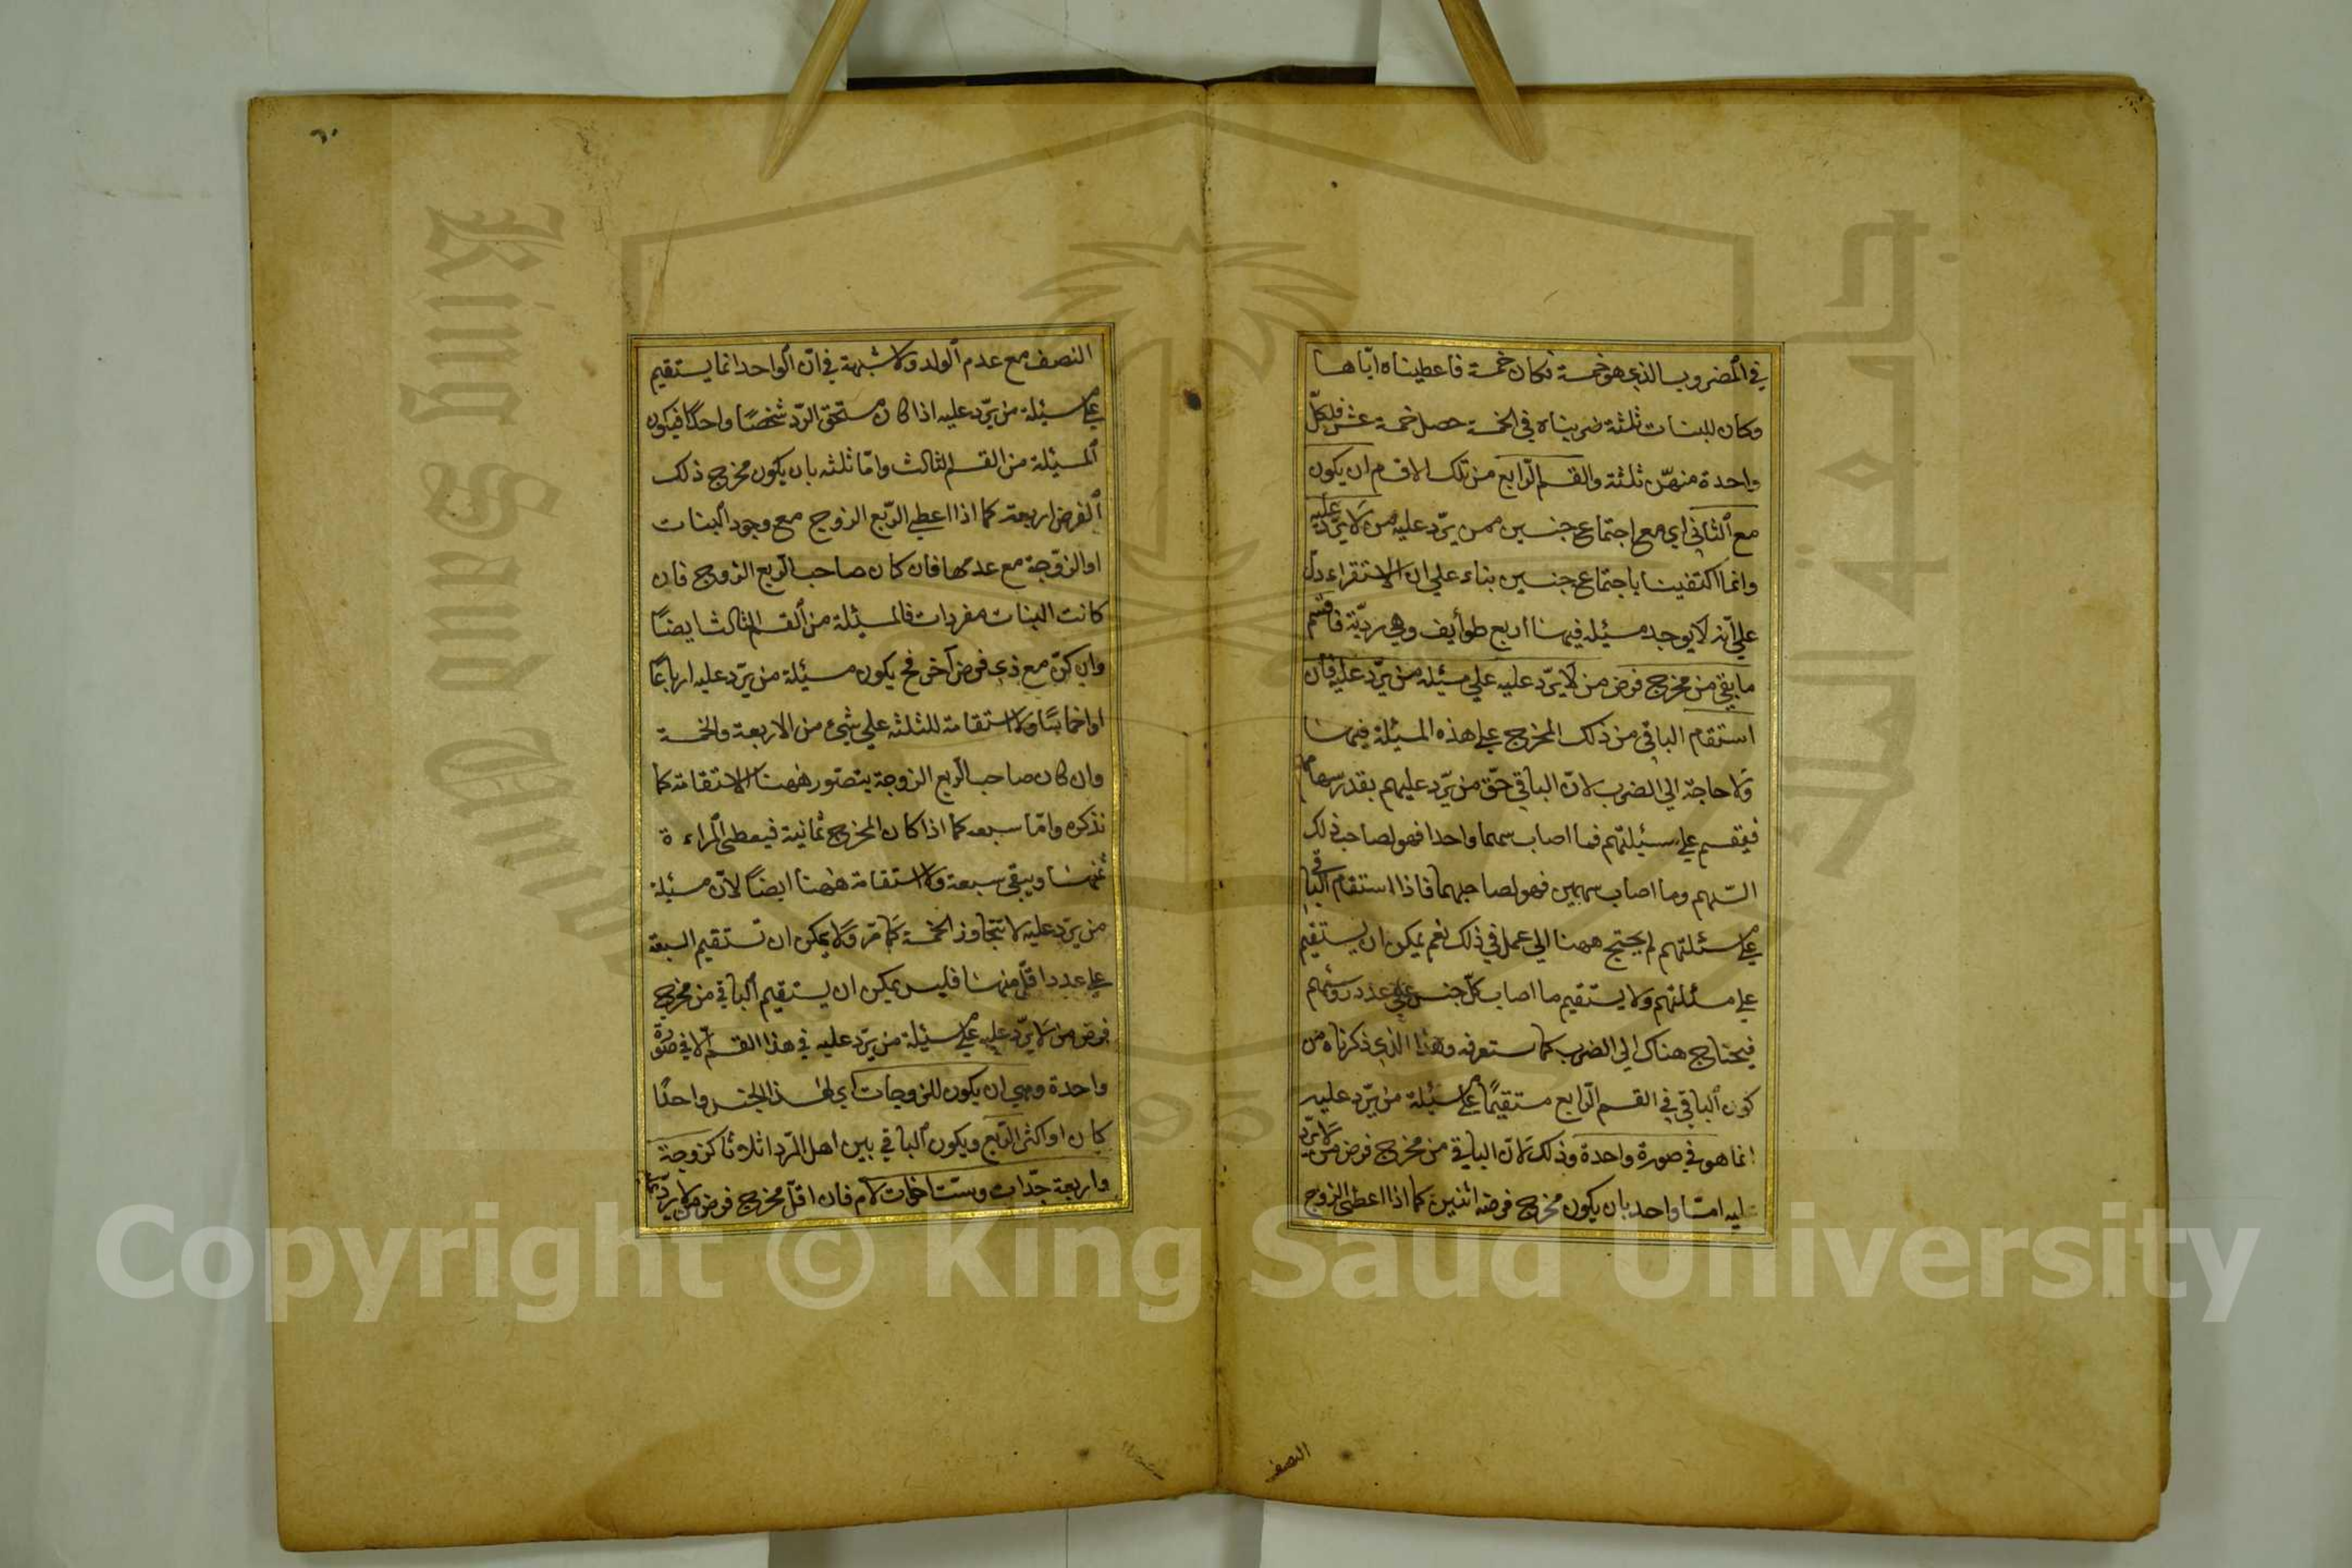 في المضروب الذي هو خمسة فكان خمسة فاعطيناه اياها
وكان للبنات ثلثة ضربناه في الخمسة حصل خمسة عشر فلكل
واحدة منهن ثلثة والقسم الرابع من تلك الاقسام ان يكون
مع الثاني اي مع اجتماع جنسين ممن يرد عليه من لا يرد عليه
وانما اكتفينا باجتماع جنسين بناء على ان الاستقراء دل
على انه لا يوجد مسئلة فيها اربع طوايف وهي ردية فاقسم
ما بقي من مخرج فرض من لا يرد عليه على مسئلة من يرد عليه فان
استقام الباقي من ذلك المخرج على هذه المسئلة فبها
ولا حاجة الى الضرب لان الباقي حق من يرد عليهم بقدر سهامهم
فيقسم على مسئلتهم فما اصاب سهما واحدا فهو لصاحب ذلك
السهم وما اصاب سهمين فهو لصاحبهما فاذا استقام الباقي
على مسئلتهم لم يحتج ههنا الى عمل في ذلك نعم يمكن ان يستقيم
على مسئلتهم ولا يستقيم ما اصاب كل جنس على عدد رؤسهم
فيحتاج هناك الى الضرب كما ستعرفه وهذا الذي ذكرناه من
كون الباقي في القسم الرابع مستقيما على مسئلة من يرد عليه
انما هو في صورة واحدة وذلك لان الباقي من مخرج فرض من لا يرد
عليه امّا واحد بان يكون مخرج فرضه اثنين كما اذا اعطى الزوج
النصف
٦٠
النصف مع عدم الولد ولا شبهة في ان الواحد انما يستقيم
على مسئلة من يرد عليه اذا كان مستحق الرد شخصا واحدا فيكون
المسئلة من القسم الثالث واما ثلثه بان يكون مخرج ذلك
الفرض اربعة كما اذا اعطي الربع الزوج مع وجود البنات
او الزوجة مع عدمها فان كان صاحب الربع الزوج فان
كانت البنات مفردات فالمسئلة من القسم الثالث ايضا
وان كن مع ذي فرض آخر فح يكون مسئلة من يرد عليه ارباعا
او اخماسا ولا استقامة للثلثه على شيء من الاربعة والخمسة
وان كان صاحب الربع الزوجة يتصور ههنا الاستقامة كما
نذكره واما سبعه كما اذا كان المخرج ثمانية فيعطى المراءة
ثمنها ويبقى سبعة ولا استقامة ههنا ايضا لان مسئلة
من يرد عليه لا تتجاوز الخمسة كما مر ولا يمكن ان تستقيم السبعة
على عدد اقل منها فليس يمكن ان يستقيم الباقي من مخرج
فرض من لا يرد عليه على مسئلة من يرد عليه في هذا القسم الا في صورة
واحدة وهي ان يكون للزوجات اي لهذا الجنس واحدا
كان او اكثر الربع ويكون الباقي بين اهل الرد اثلاثا كزوجة
واربعة جدات وست اخوات لام فان اقل مخرج فرض من لا يرد
Copyright © King Saud University
King Saud
1957